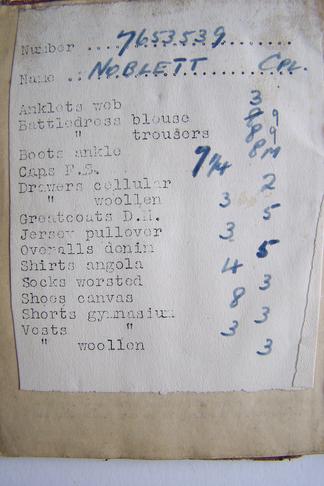 Number ....7653539...........
Name ..:NOBLETT........CPL.
Anklets web 3
Battledress blouse 8 9
" trousers 8 9
Boots ankle 8M
Caps F.S. 7 1/4
Drawers cellular 2
" woollen 3
Greatcoats D.M. 5
Jersey pullover 3
Overalls denim 5
Shirts angola 4
Socks worsted 3
Shoes canvas 8
Shorts gymnasium 3
Vests " 3
" woollen 3